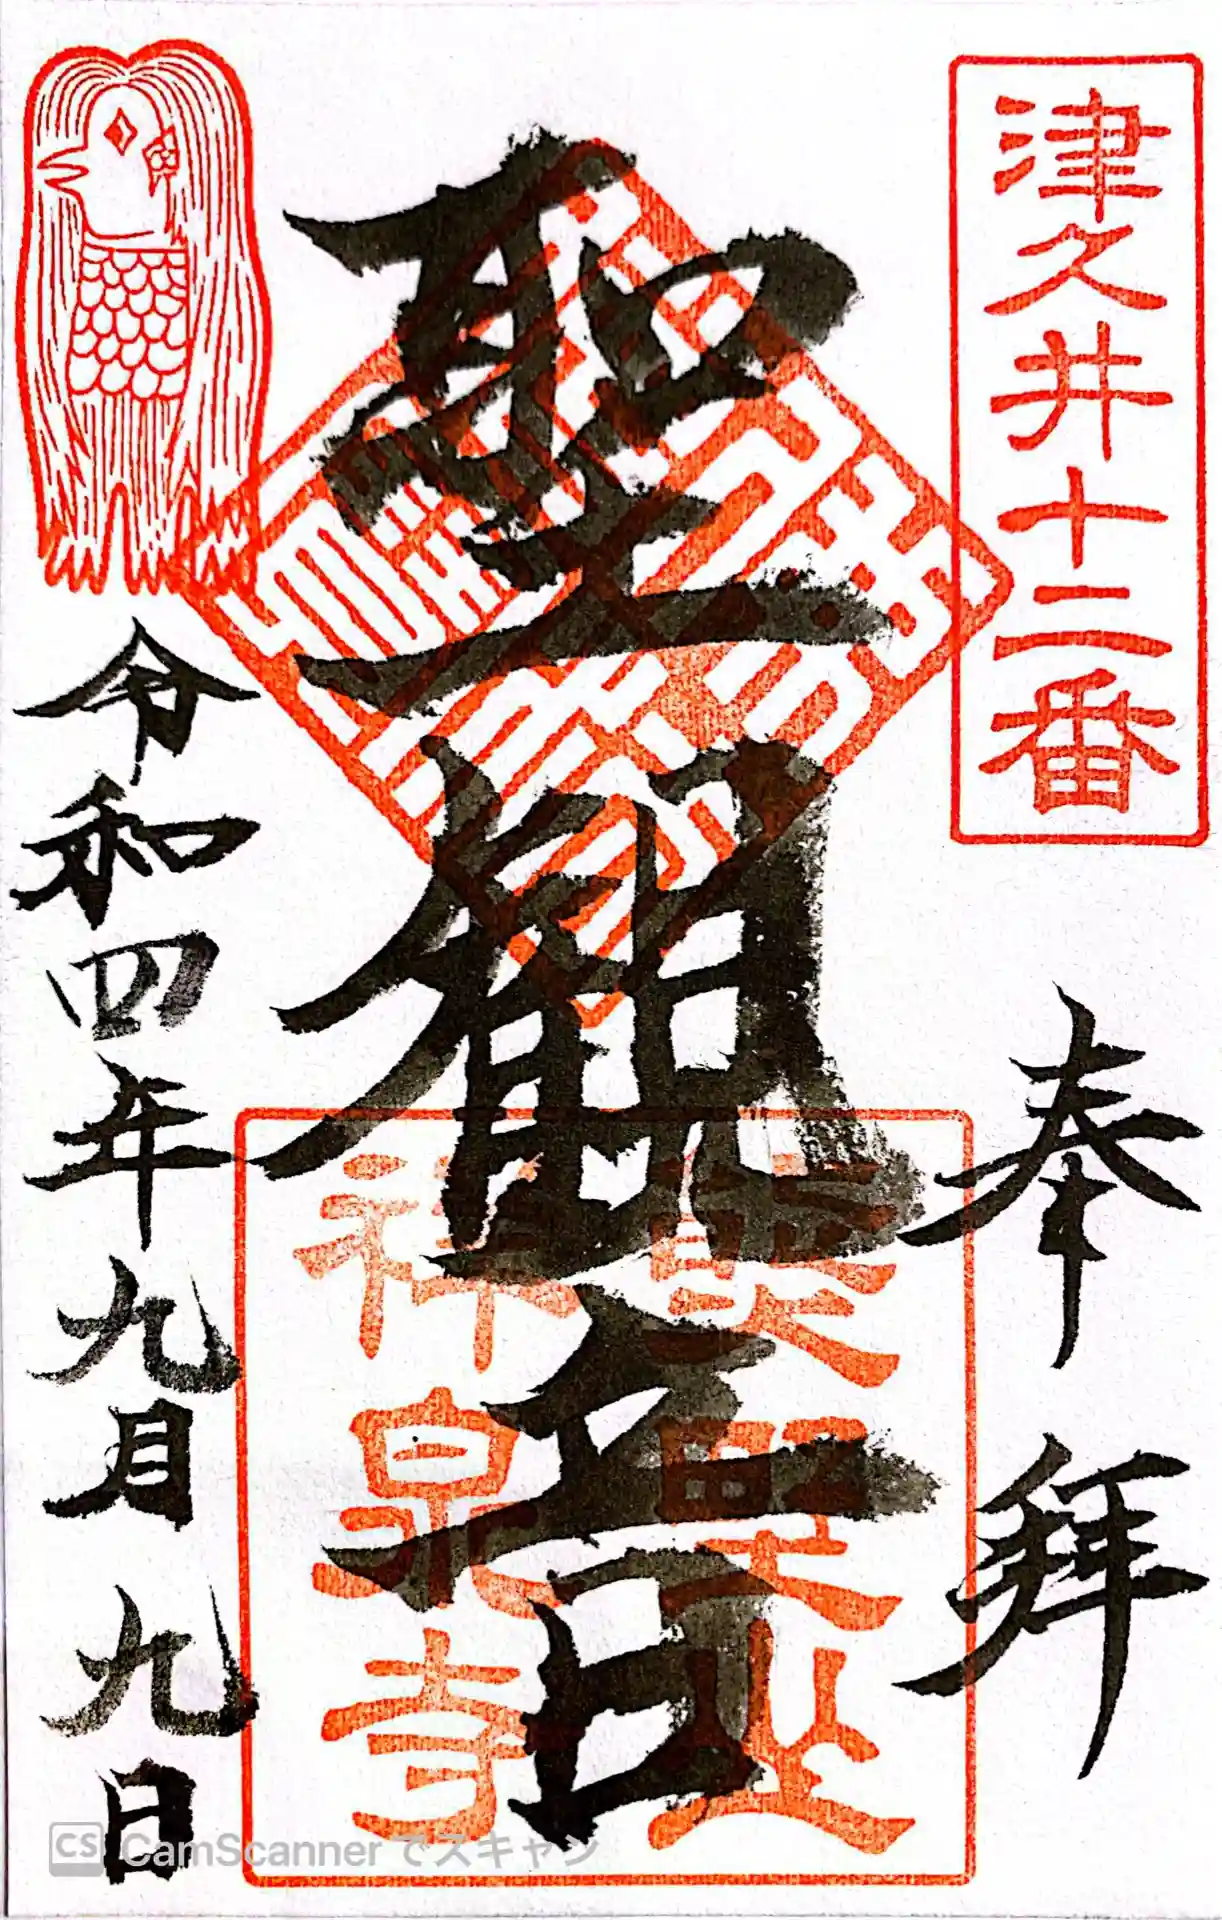 津久井十二番
奉拝
聖観音
令和四年九月九日
祥泉寺
CS CamScanner でスキャン